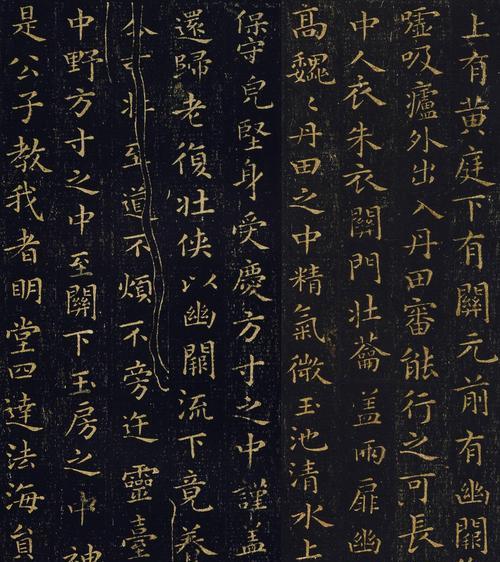 上有黃庭下有關元前有幽闕
噓吸廬外出入丹田審能行之可長
中人衣朱衣關門壯蘥蓋兩扉幽
高魏〻丹田之中精氣微玉池清水上
保守皃堅身受慶方寸之中謹蓋
還歸老復壯俠以幽闕流下竟養
壯至道不煩不旁迕靈臺
中野方寸之中至關下玉房之中神
是公子教我者明堂四達法海員